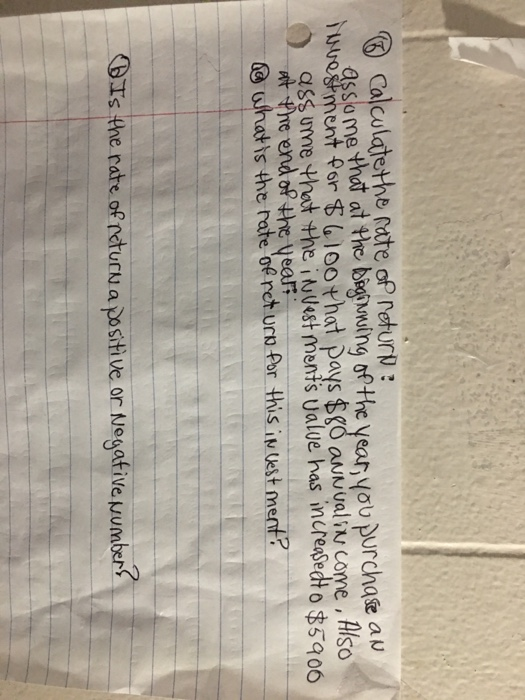 ⑧ Calculate the rate of return:
assume that at the beginning of the year, you purchase an
investment for $6,100 that pays $80 annual income. Also
assume that the investment's value has increased to $5900
at the end of the year:
ⓐ What is the rate of return for this investment?
ⓑ Is the rate of return a positive or Negative Number?